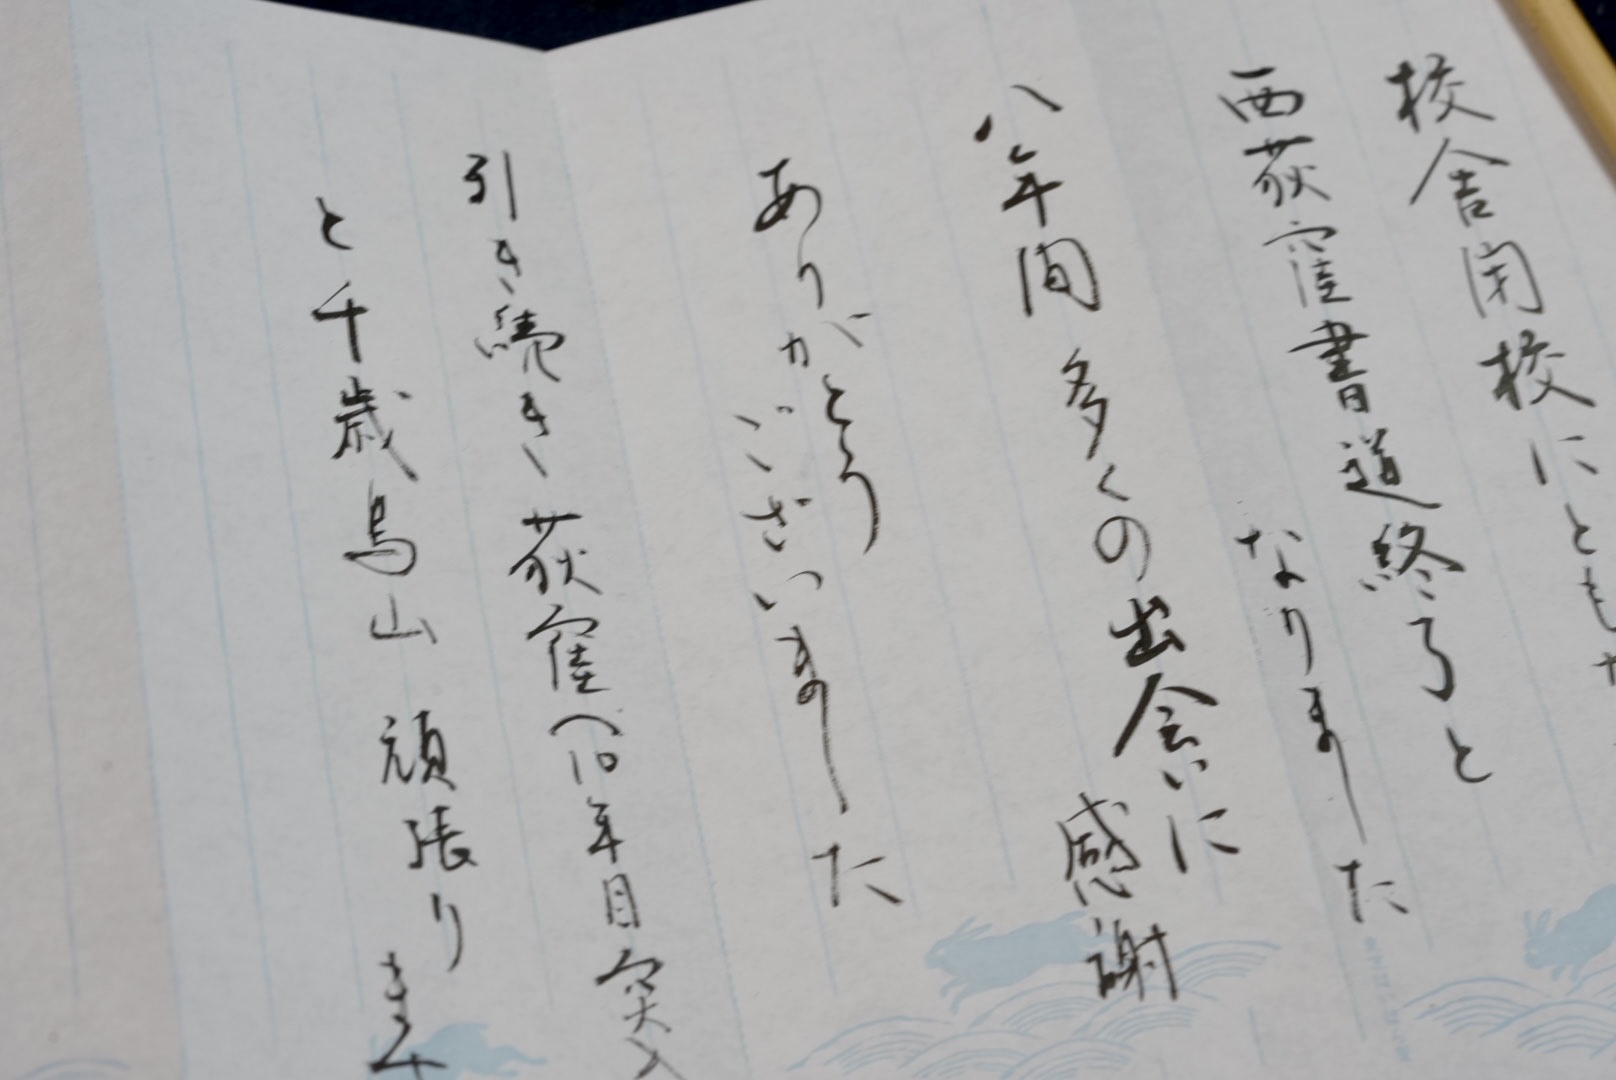 校舎閉校にともな
西荻窪書道終了と
なりました
八年間多くの出会いに
感謝
ありがとう
ございました
引き続き荻窪(10年目突入
と千歳烏山頑張ります